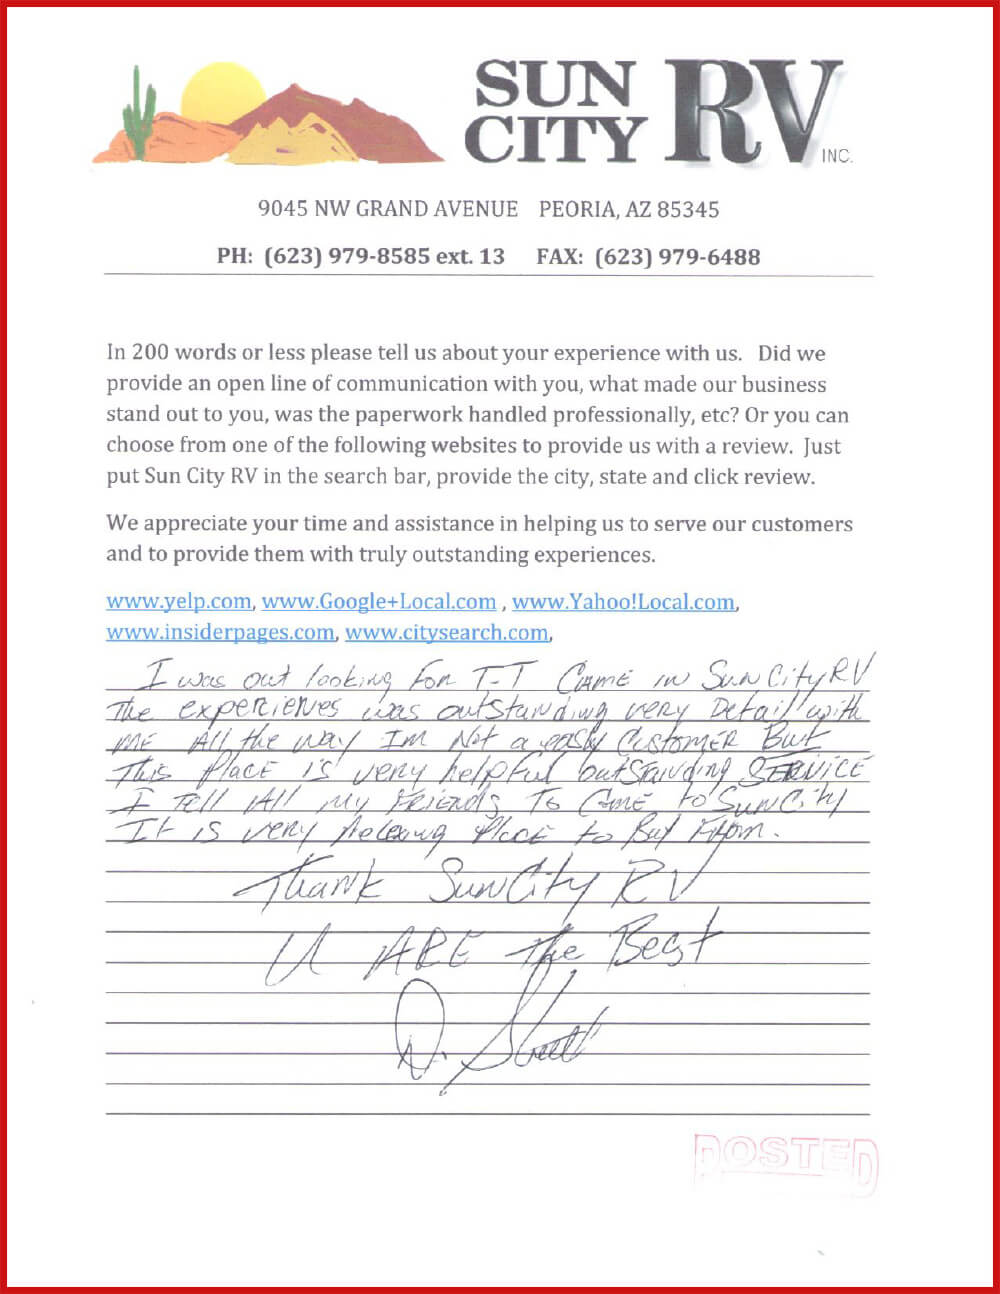 SUN
CITY RV INC.
9045 NW GRAND AVENUE PEORIA, AZ 85345
PH: (623) 979-8585 ext. 13 FAX: (623) 979-6488
In 200 words or less please tell us about your experience with us. Did we
provide an open line of communication with you, what made our business
stand out to you, was the paperwork handled professionally, etc? Or you can
choose from one of the following websites to provide us with a review. Just
put Sun City RV in the search bar, provide the city, state and click review.
We appreciate your time and assistance in helping us to serve our customers
and to provide them with truly outstanding experiences.
www.yelp.com, www.Google+Local.com , www.Yahoo!Local.com,
www.insiderpages.com, www.citysearch.com,
I was out looking For T-T CAME in Sun City RV
The experiences was outstanding very Detail with
ME All the way IM Not a easy CustomER But
This PlacE is very helpful outstanding SERVICE
I Tell All my Friends To Came to Sun City
It is very Place to From.
Thank Sun City RV
U ARE The Best
D.
POSTED